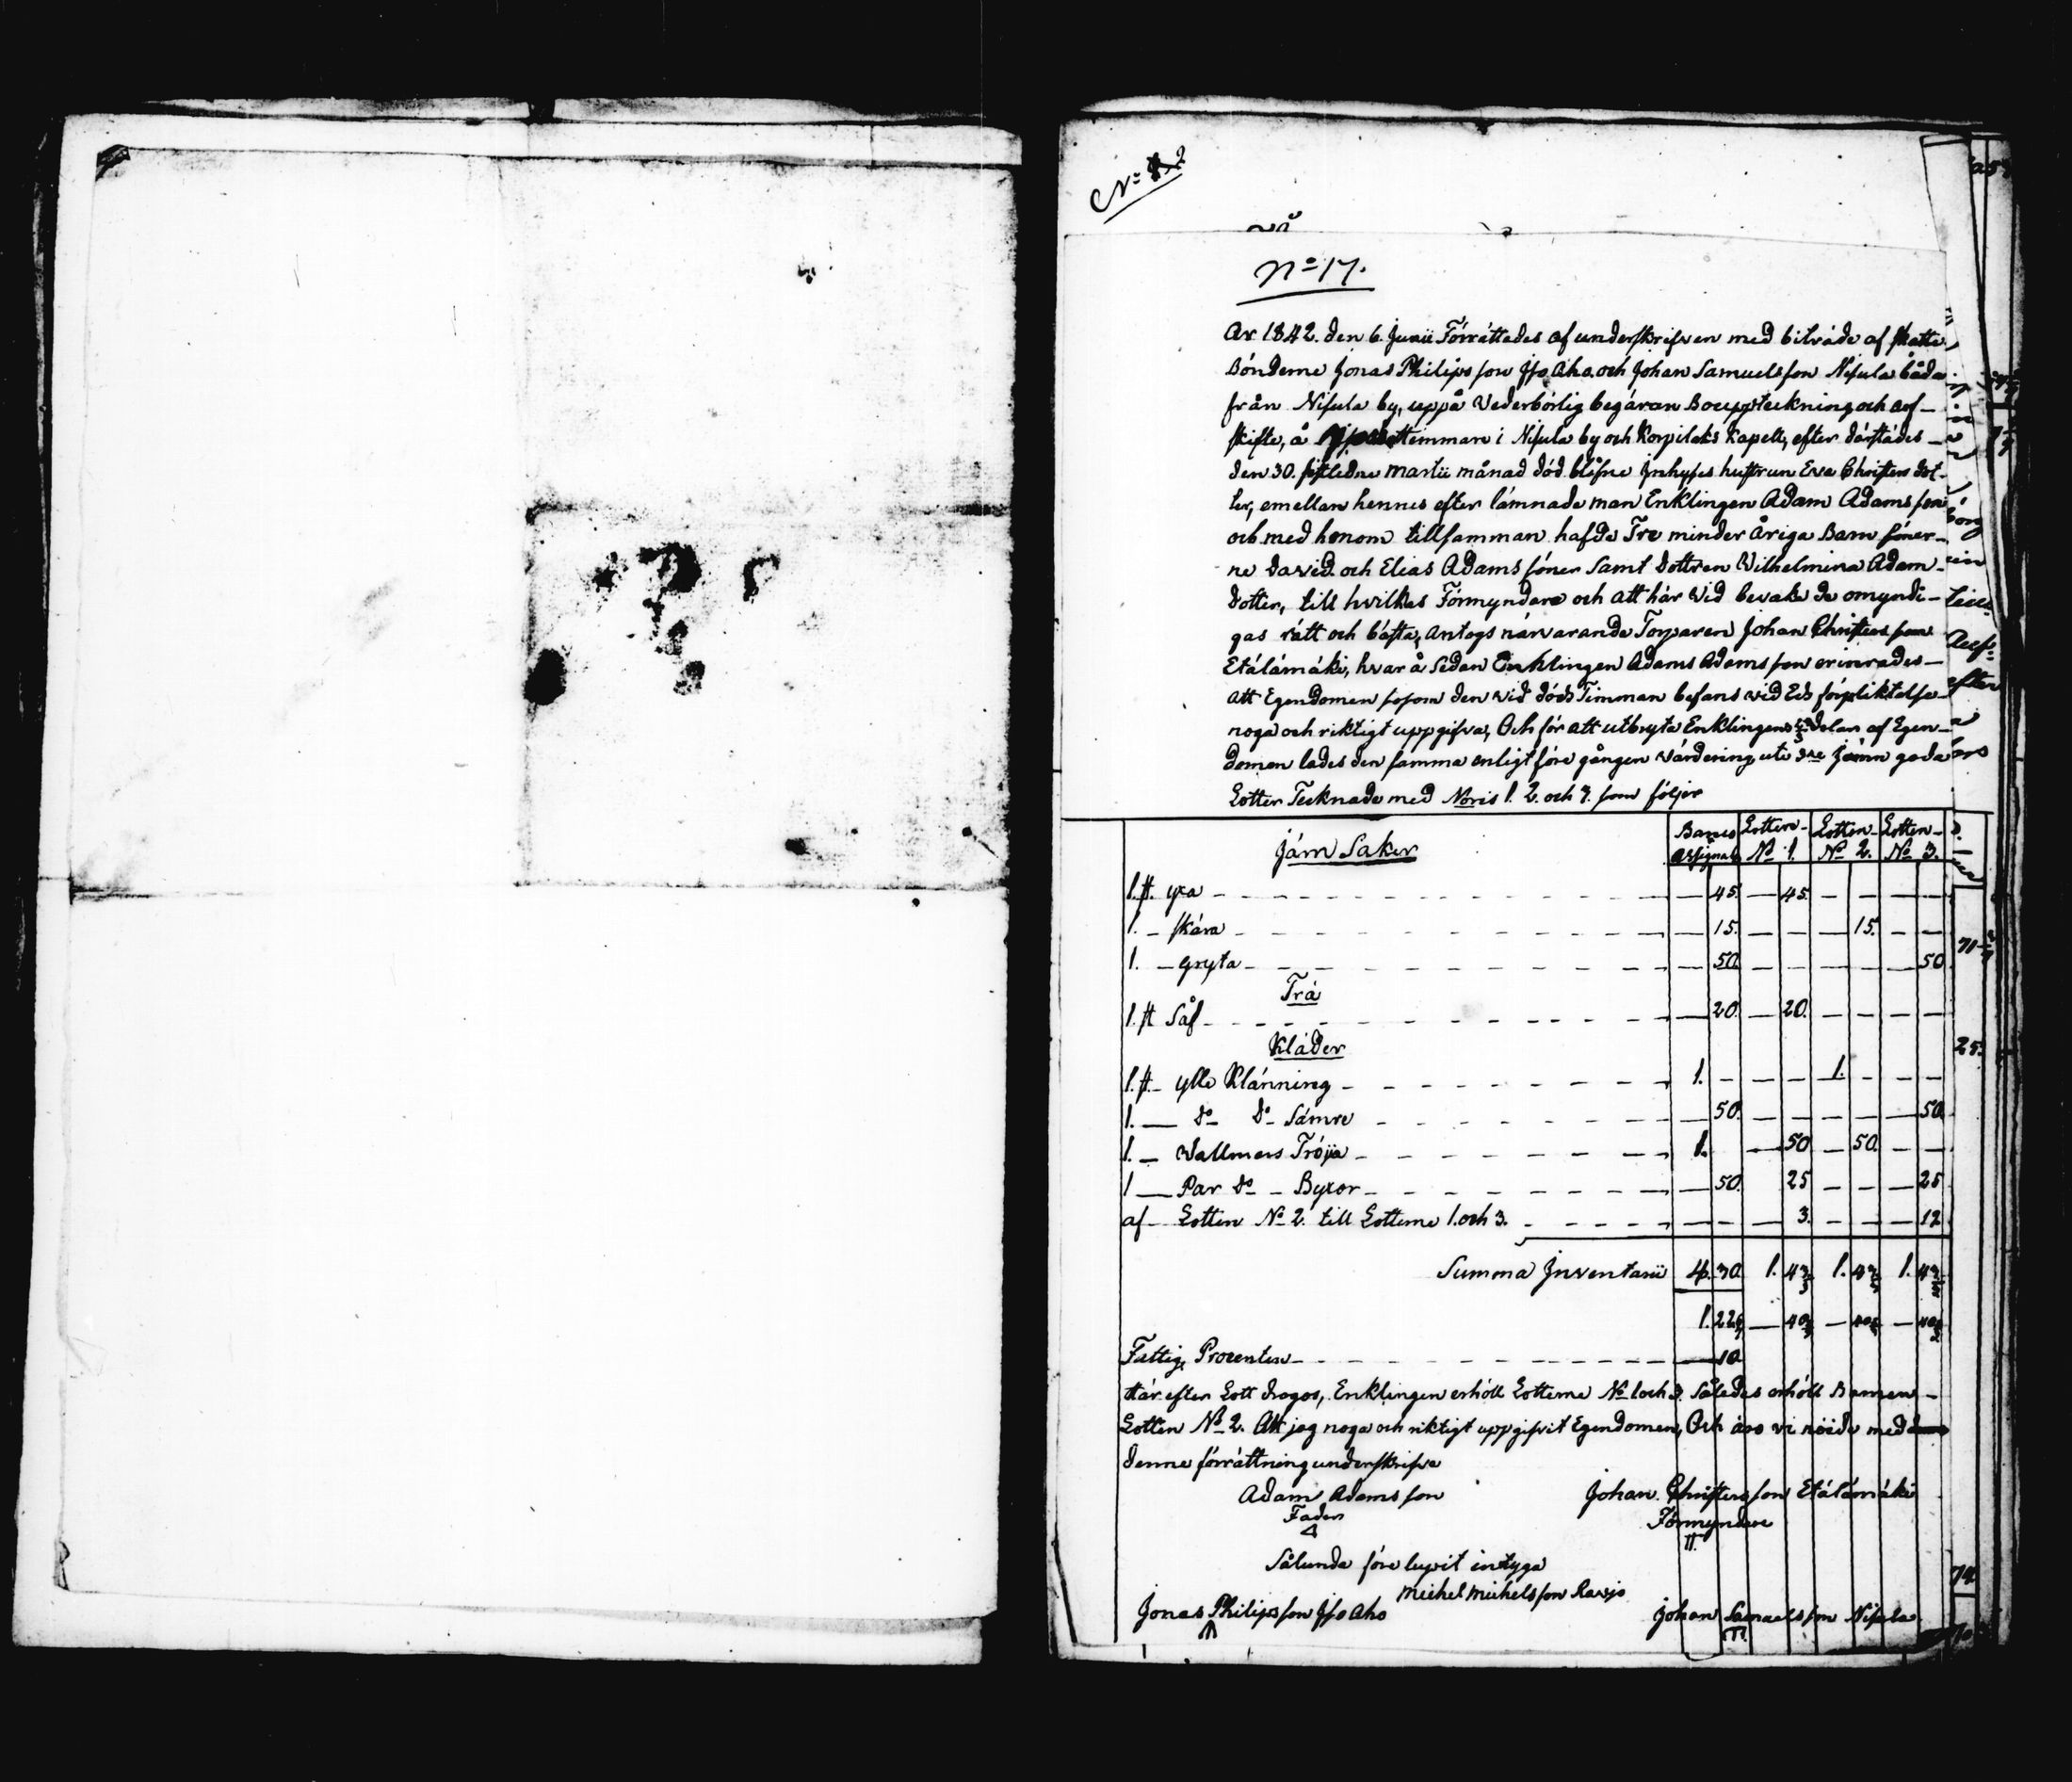 No 17.
Ar 1842. den 6. Junii Förrättades af underskrifven med biträde af skatte
Bönderne Jonas Philipsson Iso Aho och Johan Samuelsson Nisula båda
från Nisula by, uppå Vederbörlig begäran Bouppteckning och arf-
skifte, å hemman i Nisula by och Korpilaks Kapell, efter därstädes
den 30. sistledne Martii månad död blefne Inhyses hustrun Eva Christersdot-
ter, emellan hennes efter lämnade man Enklingen Adam Adamsson
och med honom tillsamman hafda Tre minder åriga Barn söner-
ne David och Elias Adamssöner Samt dottren Wilhelmina Adam-
dotter, till hvilkas Förmyndare och att här vid bevaka de omyndi-
gas rätt och bästa, antogs närvarande Torparen Johan Christersson
Etälämäki, hvar å Sedan Enklingen Adams Adamsson erinrades
att Egendomen sosom den vid döds Timman befans vid Eds förpliktelse
noga och riktigt uppgifva, Och för att utbryta Enklingens delar af Egen-
domen lades den samma enligt före gången värdering uti 3ne jämn goda
Lotter Tecknade med Noris 1. 2. och 3. som följer
Järn Saker Banco Assignat. Lotten No 1. Lotten No 2. Lotten No 3.
1. st. yxa — 45. — 45. — — —
1. — skära — 15. — — — 15. — —
1. — gryta — 50. — — — — — 50
Trä
1. st Såf — 20. — 20. — — —
Kläder
1. st. ylle Klänning 1. — — — 1. — — —
1. — do do Sämre — 50. — — — — — 50.
1. — Wallmars Tröija 1. — 50 — 50. — —
1 — Par do — Byxor — 50. 25 — — — 25
af Lotten No 2. till Lotterne 1. och 3. — — — 3. — — — 12
Summa Inventarii 4. 30. 1. 43 1. 43 1. 43
1. 22 — 40 — 40 — 40
Fattig Procenten — 10
Här efter Lott drogos, Enklingen erhöll Lotterne No 1 och 3. Således erhöll Barnen
Lotten No 2. Att jag noga och riktigt uppgifvit Egendomen, Och äro vi nöide med
denne förrättning underskrifva
Adam Adamsson Johan Christersson Etälämäki
Fader Förmyndare
Sålunda före lupit intyga
Michel Michelsson
Jonas Philipsson Iso Aho Johan Samuelsson Nisula